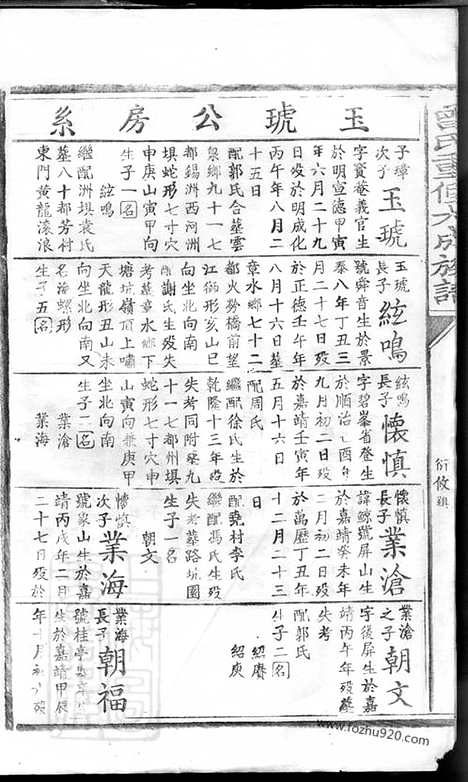 曾氏重修大成族譜
玉琥公房系
子璋
次子 玉琥
字實菴義官生
於明宣德甲寅
年六月二十九
日歿於明成化
丙午年八月二
十五日
配郭氏合墓雲
泉鄉九十一七
都錫洲西河洲
塤蛇形七寸穴
申庚山寅甲向
生子一名
絃鳴
繼配洲塤袁氏
墓八十都芳付
東門黃龍滾浪
玉琥
長子 絃鳴
號舜音生於景
泰八年丁丑三
月二十七日歿
於正德壬午年
八月十六日墓
章水鄉七十二
都火勞橋前望
江佝形亥山巳
向
配謝氏生歿失
考墓章水鄉下
塘坑嶺頂上嘯
天龍形丑山未
向坐北向南又
名海螺形
生子五名
絃鳴
長子 懷慎
字碧峯省登生
於順治乙酉年
九月初二日歿
於嘉靖壬寅年
五月十六日
配周氏
繼配徐氏生於
乾隆十三年歿
失考同附葬九
十一七都州塤
蛇形七寸穴申
山寅向兼庚甲
坐北向南
生子二名
業滄
業海
懷慎
長子 業滄
諱鯨號屏山生
於嘉靖癸未年
二月初二日歿
於萬歷丁丑年
十二月二十三
日
配堯村李氏
繼配馮氏生歿
失考墓路坑園
生子一名
朝文
懷慎
次子 業海
號象山生於嘉
靖丙戌年二月
二十七日歿於
業滄
之子 朝文
字後屏生於嘉
靖丙午年歿墓
失考
配郭氏
生子二名
紹賡
紹庚
業海
長子 朝福
號桂亭
生於嘉靖甲辰
年十月初
衍攸
www.fozhu920.com